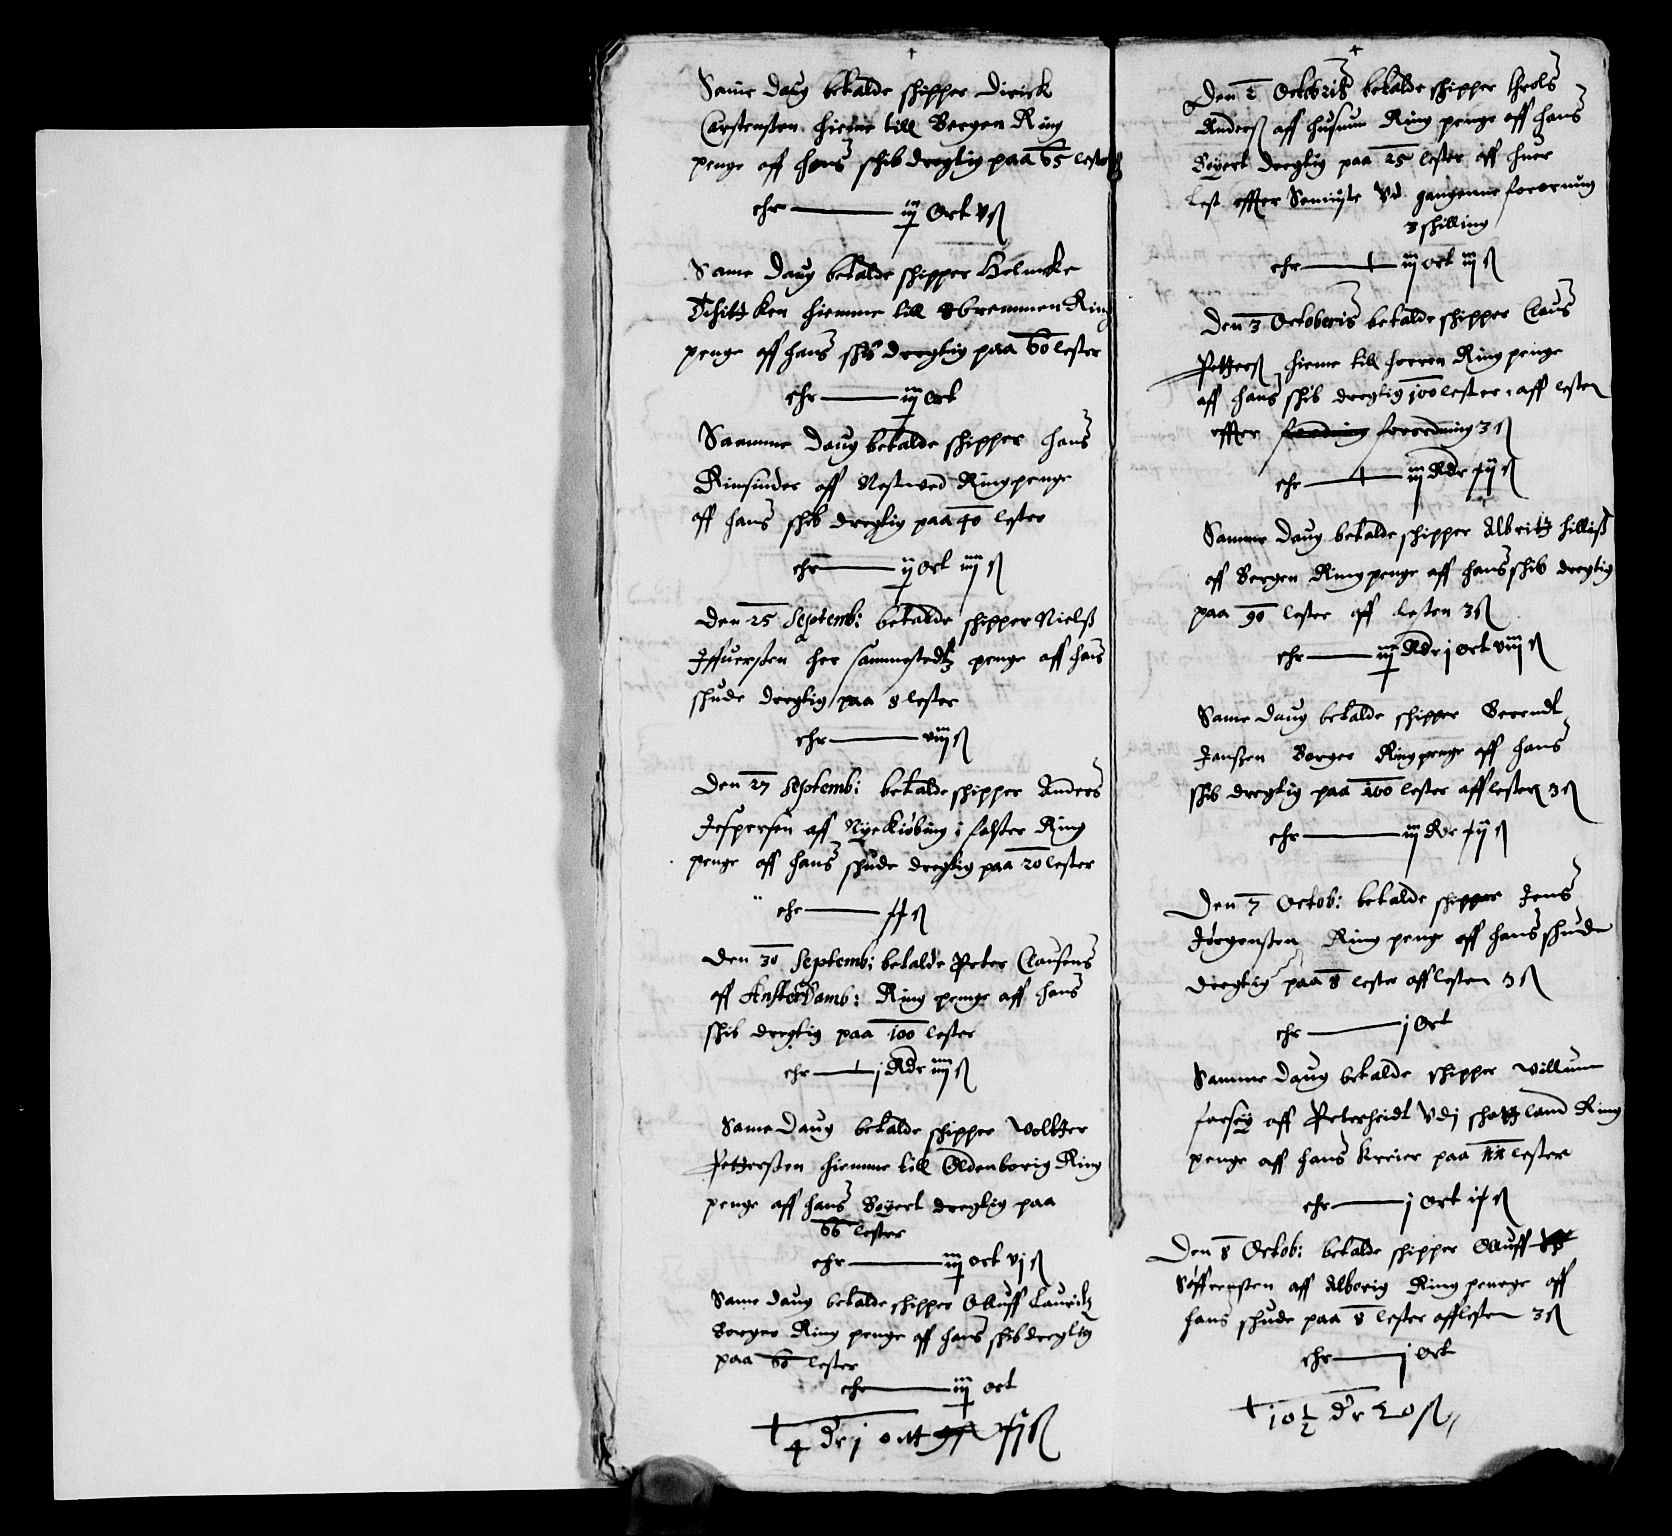 Same daug bekalde shipper Dirick
Carstensten hieme till Bergen Ring
penge aff hans shib dregtig paa 65 lester
ehr — iij Ort v ß
Same daug bekalde shipper Helmeke
hiemme till bremmen Ring
penge aff hans shib dregtig paa 60 lester
ehr — iij Ort
Saamme daug bekalde shipper hans
aff Nestwed Ringpenge
aff hans shib dregtig paa 40 lester
ehr — ij Ort iiij ß
Den 25 Septemb: bekalde shipper Nielß
Iffuersten her penge aff hans
shude dregtig paa 8 lester
ehr — viij ß
Den 27 Septemb: bekalde shipper Anders
Jespersen aff Nyekiøbing i falster Ring
penge aff hans shude dregtig paa 20 lester
ehr — ß
Den 30 Septemb: bekalde Peter Clausens
aff Ansterdamb: Ring penge aff hans
shib dregtig paa 100 lester
ehr — j Rdr iiij ß
Same Daug bekalde shipper Volkzer
Petterßten hiemme till Oldenborig Ring
penge aff hans Boyert dregtig paa
66 lester
ehr — iij ort vj ß
Same daug bekalde shipper Olluff Lauridz
Borger Ring penge aff hans shib dregtig
paa 60 lester
ehr — iij ort
4 dr j ortt ß
Den 2 Octobris bekalde shipper
Anderß aff husum Ring penge aff hans
Boyert dregtig paa 25 lester aff huer
Lest effter gangenne forornung
3 shilling
ehr — iij ort iij ß
Den 3 Octoberis bekalde shipper Claus
Petterß hieme till horren Ring penge
aff hans shib dregtig 100 lester, aff lesten
effter forordning 3 ß
ehr — iij Rdr ß
Samme daug bekalde shipper Albritz hilliß
aff Bergen Ring penge aff hans shib dregtig
paa 90 lester aff Lesten 3 ß
ehr — iij Rdr j ort viij ß
Same daug bekalde shipper Berendt
Janßen Borger Ring penge aff hans
shib dregtig paa 100 lester aff lesten 3 ß
ehr — iij Rdr ß
Den 7 Octob: bekalde shipper Jens
Jørgensten Ring penge aff hans shude
dregtig paa 8 lester aff lesten 3 ß
ehr — j Ort
Samme daug bekalde shipper Villum
forsey aff Peterheidt Vdj shottland Ring
penge aff hans kreier paa lester
ehr — j Ort ß
Den 8 Octob: bekalde shipper Olluff
Søffrensten aff Alborig Ring penge aff
hans shude paa 8 lester aff lesten 3 ß
ehr — j Ort
10½ dr 20 ß